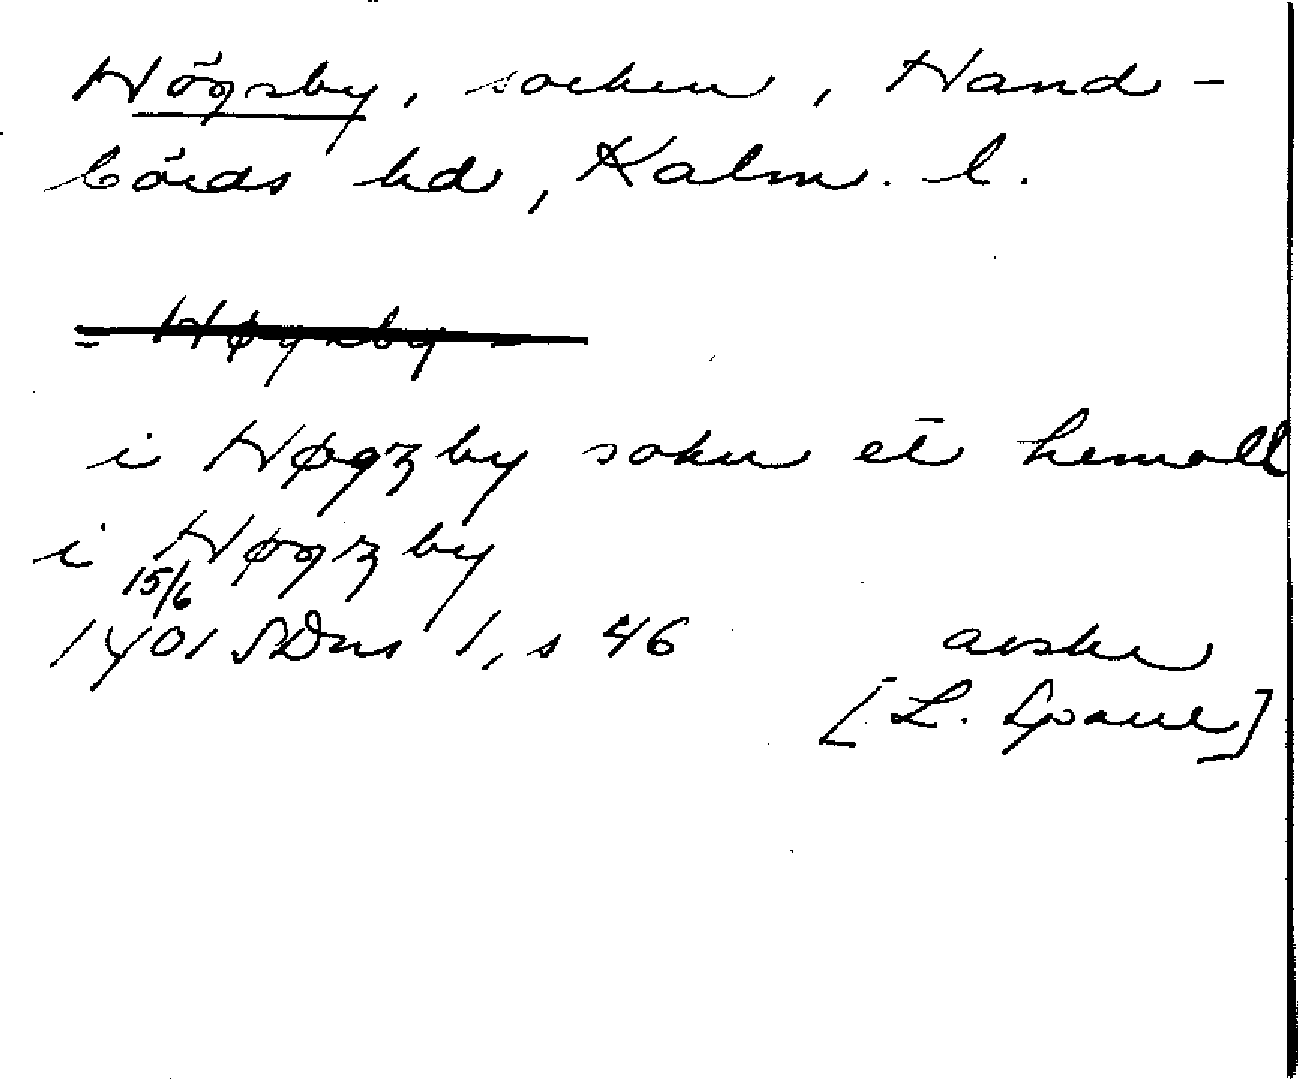 Högsby, socken, Hand-
börds hd, Kalm. l.
= Høgxby -
i Høgzby sokn et hemall
i Høgzby
15/6
1401 SDns 1, s 46 avskr
[L. ]